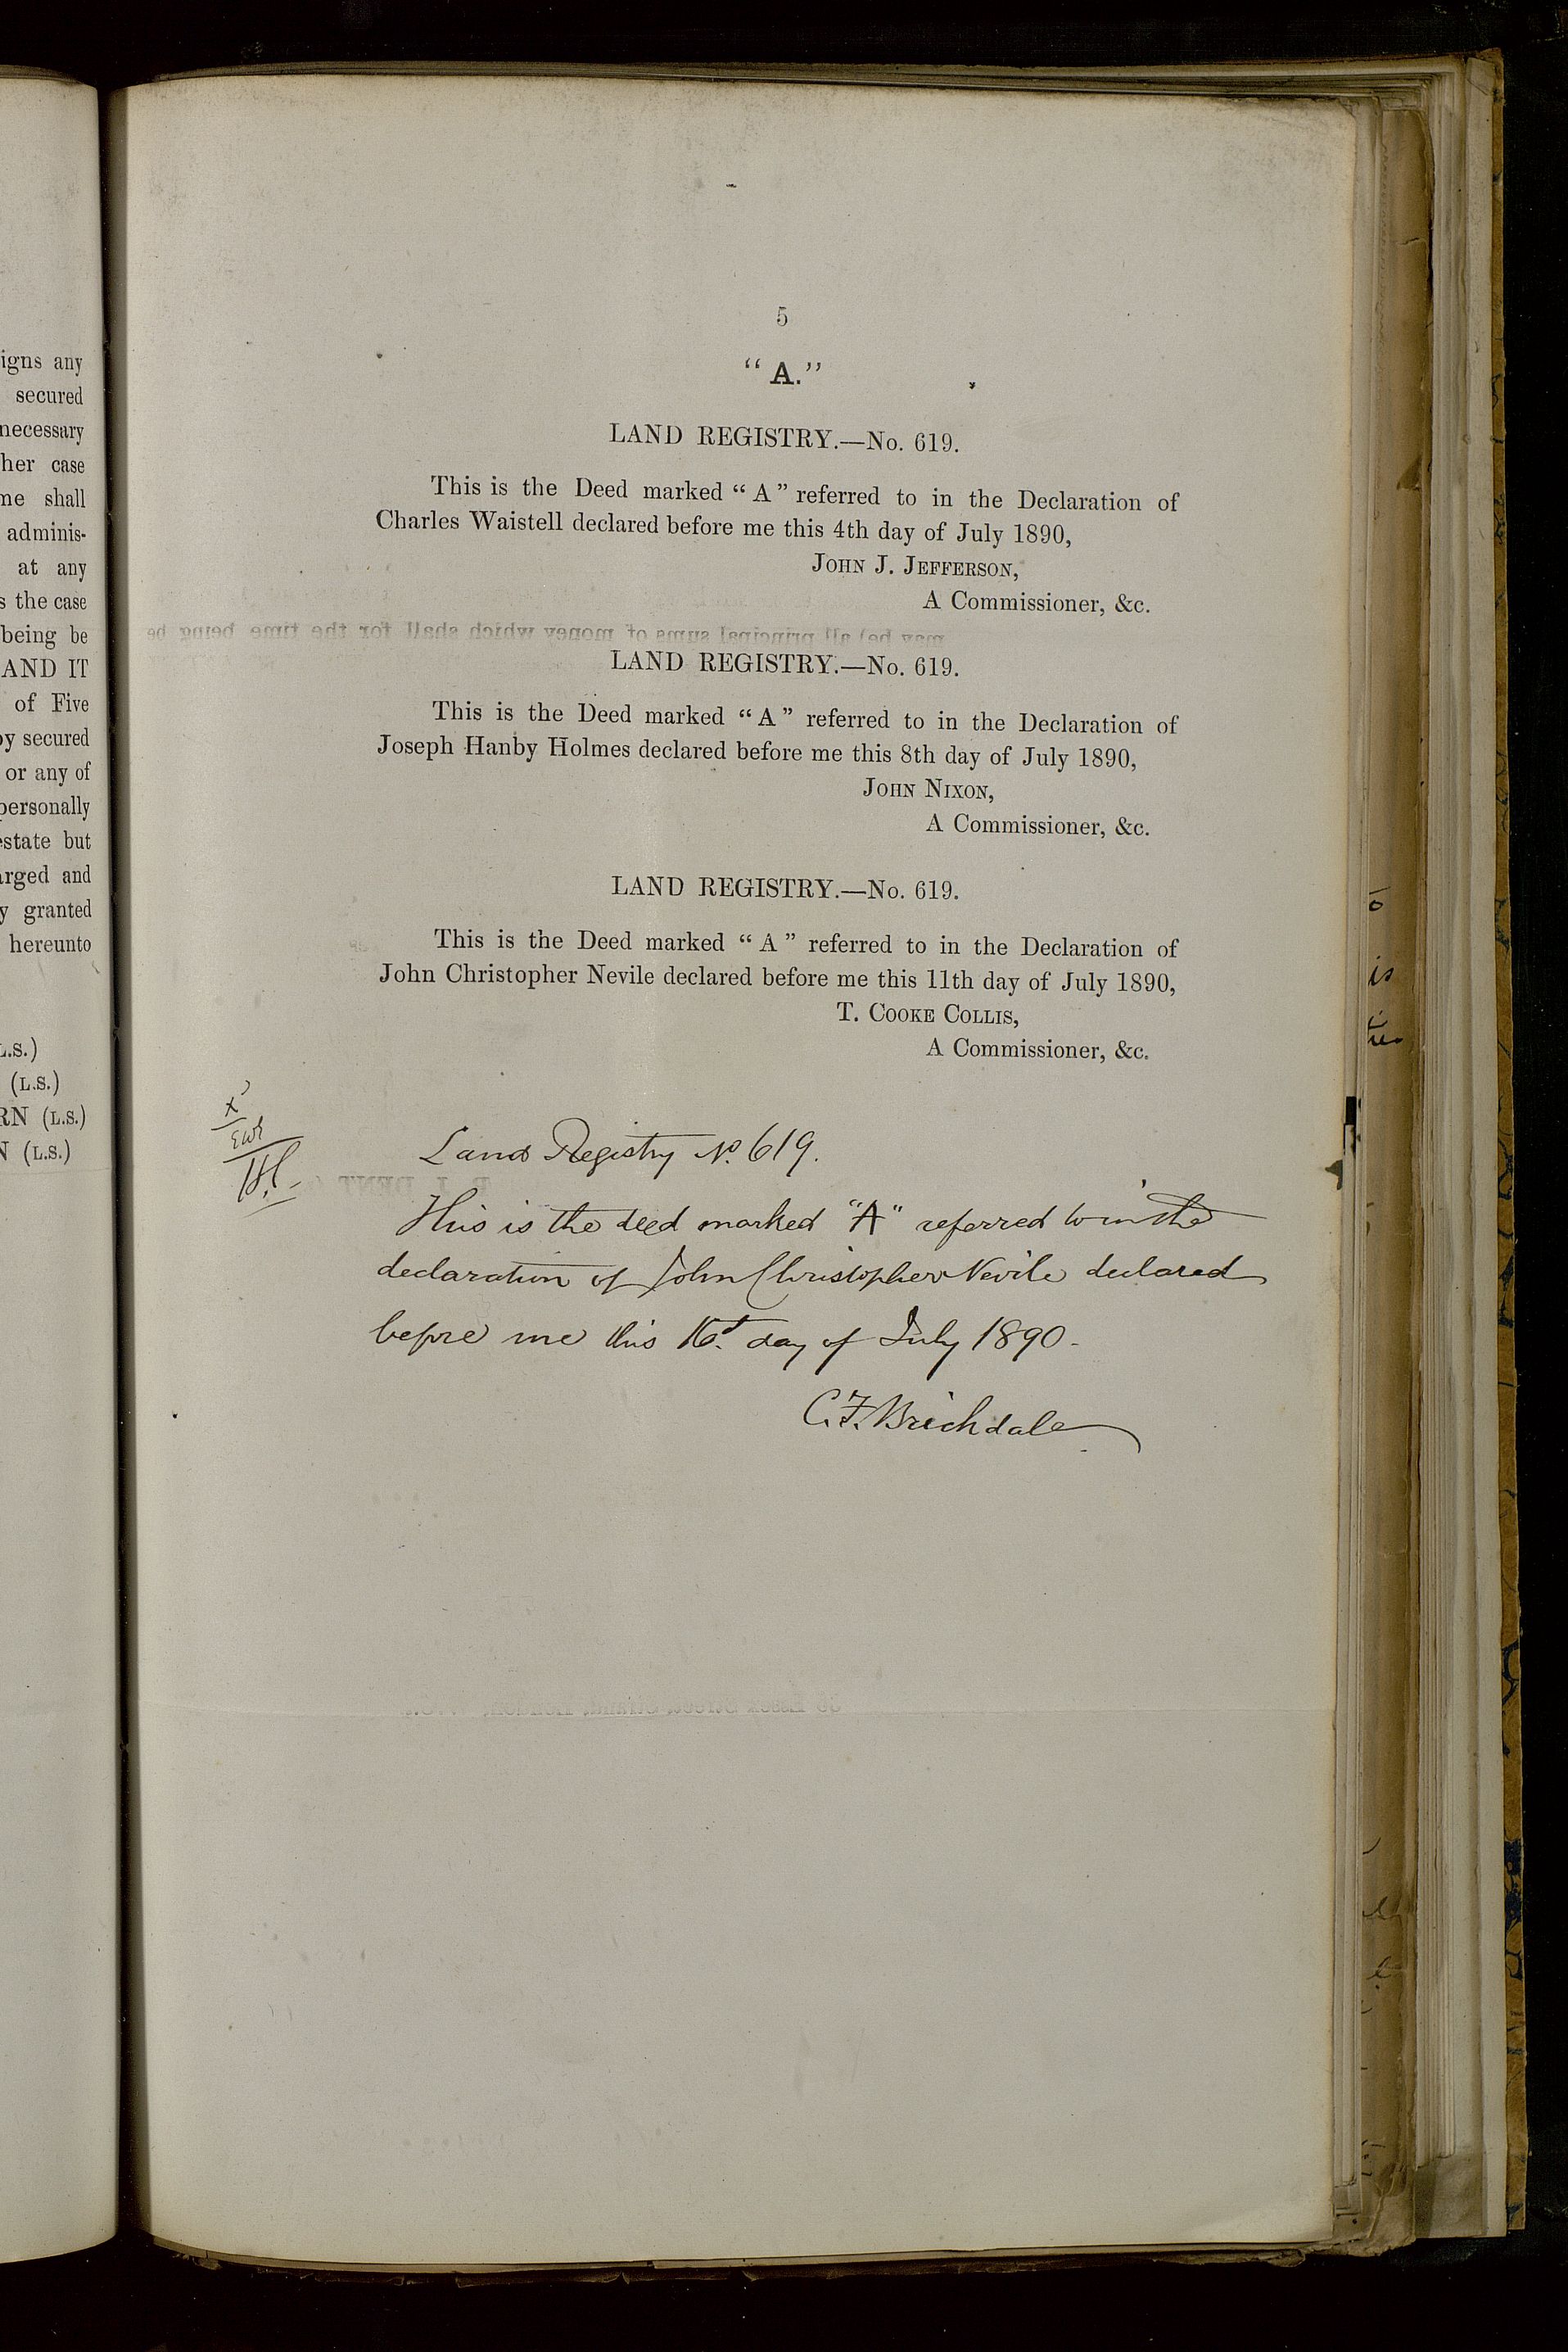 igns any
secured
necessary
her case
me shall
adminis-
at any
s the case
being be
AND IT
of Five
by secured
or any of
personally
estate but
arged and
y granted
hereunto
L.S.)
(L.S.)
RN (L.S.)
N (L.S.)
5
“A.”
LAND REGISTRY.—No. 619.
This is the Deed marked “A” referred to in the Declaration of
Charles Waistell declared before me this 4th day of July 1890,
JOHN J. JEFFERSON,
A Commissioner, &c.
LAND REGISTRY.—No. 619.
This is the Deed marked “A” referred to in the Declaration of
Joseph Hanby Holmes declared before me this 8th day of July 1890,
JOHN NIXON,
A Commissioner, &c.
LAND REGISTRY.—No. 619.
This is the Deed marked “A” referred to in the Declaration of
John Christopher Nevile declared before me this 11th day of July 1890,
T. COOKE COLLIS,
A Commissioner, &c.
Land Registry No. 619.
This is the deed marked “A” referred to in the
declaration of John Christopher Nevile declared
before me this 16th day of July 1890.
C. F. Brickdale